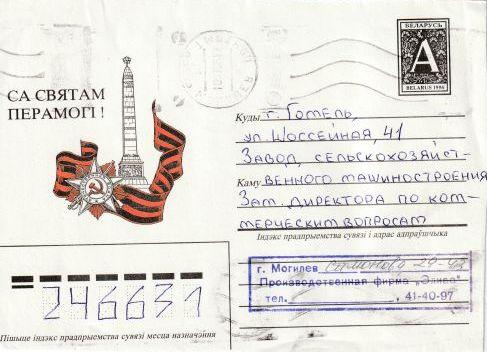 БЕЛАРУСЬ
А
BELARUS 1996
СА СВЯТАМ
ПЕРАМОГІ !
Куды г. Гомель,
ул. Шоссейная, 41
Завод сельскохозяйст-
Каму венного машиностроения
Зам. директора по ком-
мерческим вопросам
Індэкс прадпрыемства сувязі і адрас адпраўшчыка
г. Могилев
Производственная фирма „Элива"
тел. 41-40-97
246631
Пішыце індэкс прадпрыемства сувязі месца назначэння